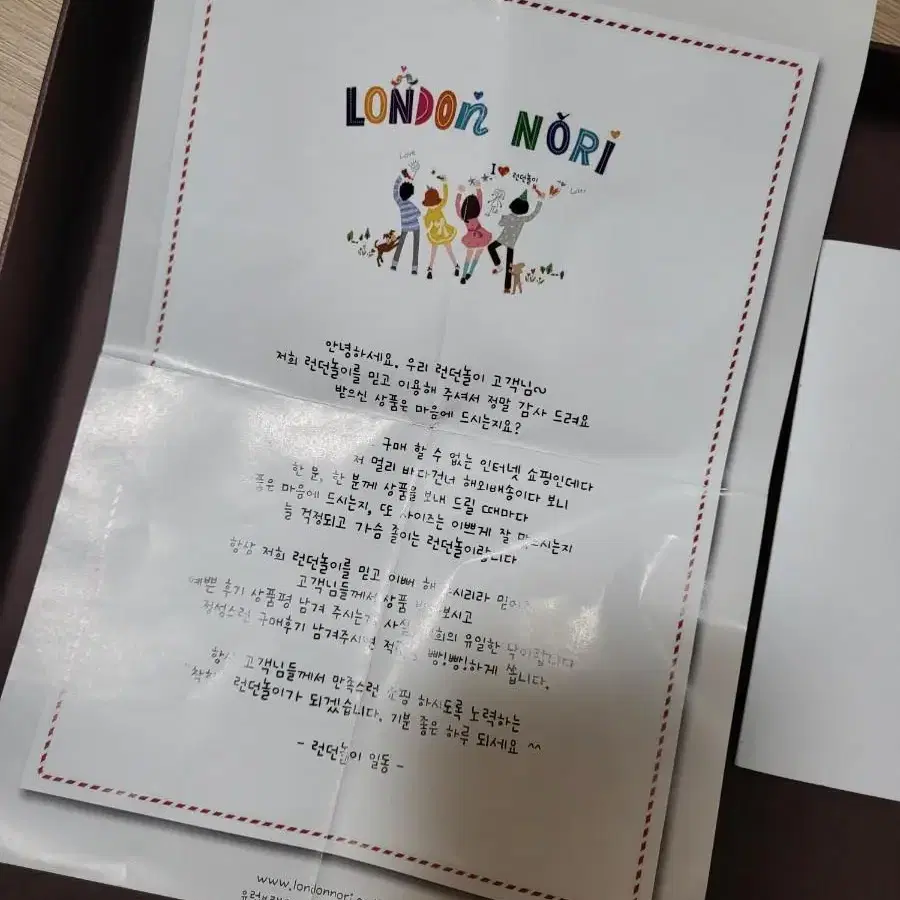 LONDON NORI
Love
I ♥ 런던놀이
Love
안녕하세요. 우리 런던놀이 고객님~
저희 런던놀이를 믿고 이용해 주셔서 정말 감사 드려요
받으신 상품은 마음에 드시는지요?
구매 할 수 없는 인터넷 쇼핑인데다
저 멀리 바다건너 해외배송이다 보니
한 분, 한 분께 상품을 보내 드릴 때마다
마음에 드시는지, 또 사이즈는 이쁘게 잘
늘 걱정되고 가슴 졸이는 런던놀이랍니다
항상 저희 런던놀이를 믿고 이뻐 해
고객님들께서 상품
예쁜 후기 상품평 남겨 주시는 유일한
정성스런 구매후기 남겨주시면 빵!빵!하게 쏩니다.
고객님들께서 만족스런 쇼핑 하시도록 노력하는
런던놀이가 되겠습니다. 기분 좋은 하루 되세요 ^^
- 런던놀이 일동 -